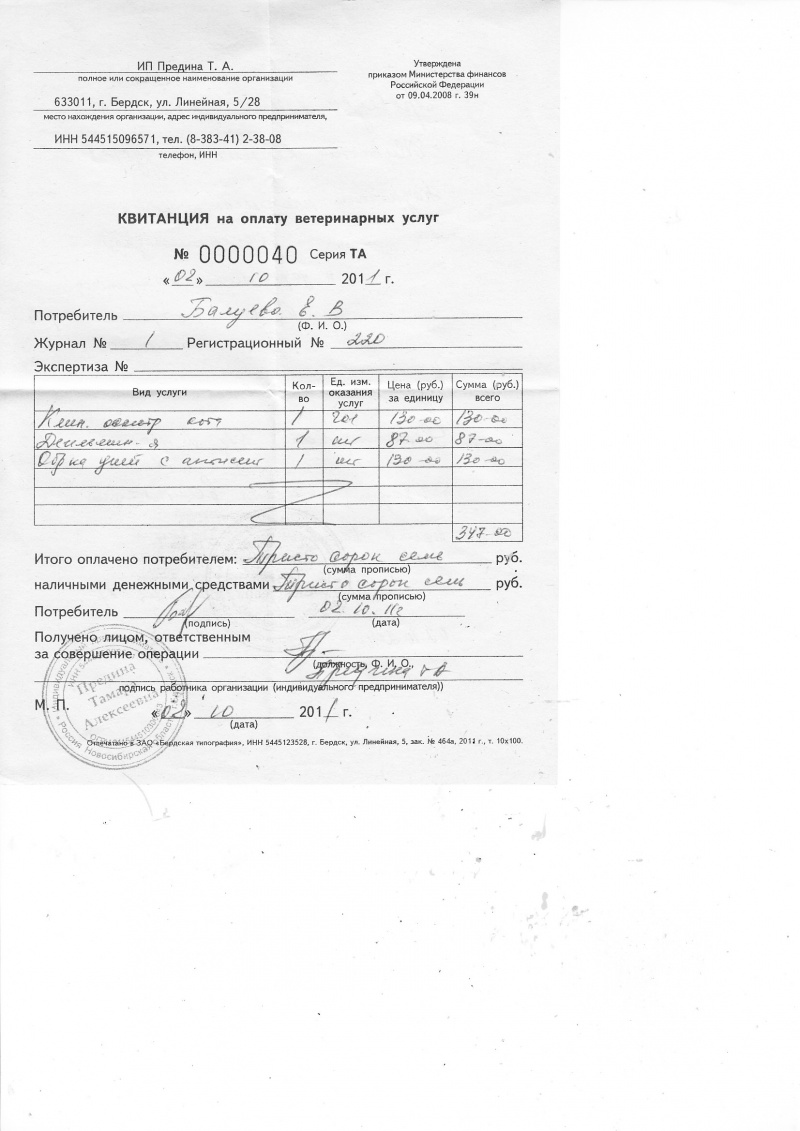 ИП Предина Т. А.
полное или сокращенное наименование организации
633011, г. Бердск, ул. Линейная, 5/28
место нахождения организации, адрес индивидуального предпринимателя,
ИНН 544515096571, тел. (8-383-41) 2-38-08
телефон, ИНН
Утверждена
приказом Министерства финансов
Российской Федерации
от 09.04.2008 г. 39н
КВИТАНЦИЯ на оплату ветеринарных услуг
№ 0000040 Серия ТА
«02» 10 2011 г.
Потребитель Балуева Е. В
(Ф. И. О.)
Журнал № 1 Регистрационный № 220
Экспертиза №
Вид услуги Кол-во Ед. изм. оказания услуг Цена (руб.) за единицу Сумма (руб.) всего
Клин. осмотр кота 1 гол 130-00 130-00
1 шт 87-00 87-00
ушей с 1 шт 130-00 130-00
347-00
Итого оплачено потребителем: Триста сорок семь руб.
(сумма прописью)
наличными денежными средствами Триста сорок семь руб.
(сумма прописью)
Потребитель 02.10.11г
(подпись) (дата)
Получено лицом, ответственным
за совершение операции
(должность, Ф. И. О.,
Предина ТА
подпись работника организации (индивидуального предпринимателя))
М. П.
«02» 10 2011 г.
(дата)
Предина
Тамара
Алексеевна
Отпечатано в ЗАО «Бердская типография», ИНН 5445123528, г. Бердск, ул. Линейная, 5, зак. № 464а, 2011 г., т. 10х100.